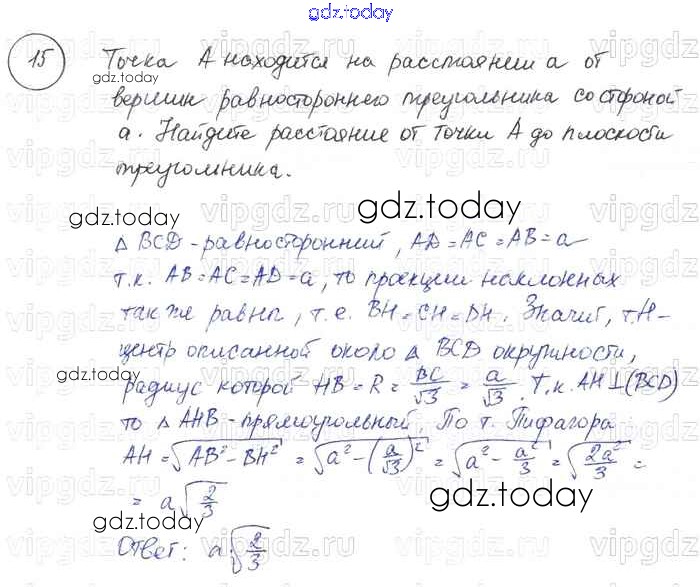 gdz.today
15 Точка А находится на расстоянии а от
вершин равностороннего треугольника со стороной
а. Найдите расстояние от точки А до плоскости
треугольника.
Δ BCD - равносторонний, AD = AC = AB = a
т.к. AB = AC = AD = a, то проекции наклонных
также равны, т.е. BH = CH = DH. Значит, т.H-
центр описанной около Δ BCD окружности,
радиус которой HB = R = BC/√3 = a/√3. Т.к. AH⊥(BCD)
то Δ AHB - прямоугольный. По т. Пифагора
AH = √(AB² - BH²) = √(a² - (a/√3)²) = √(a² - a²/3) = √(2a²/3) =
= a√(2/3)
Ответ: a√(2/3)